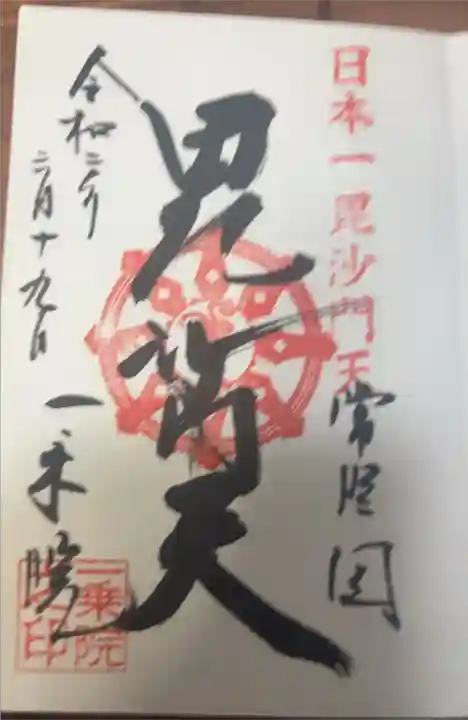 日本一毘沙門天
常陸國
毘沙門天
令和二年
二月十九日
一乗院
一乗院
印